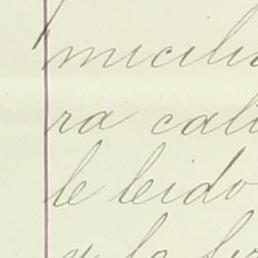 micili
ra cali
le leido
y la fir